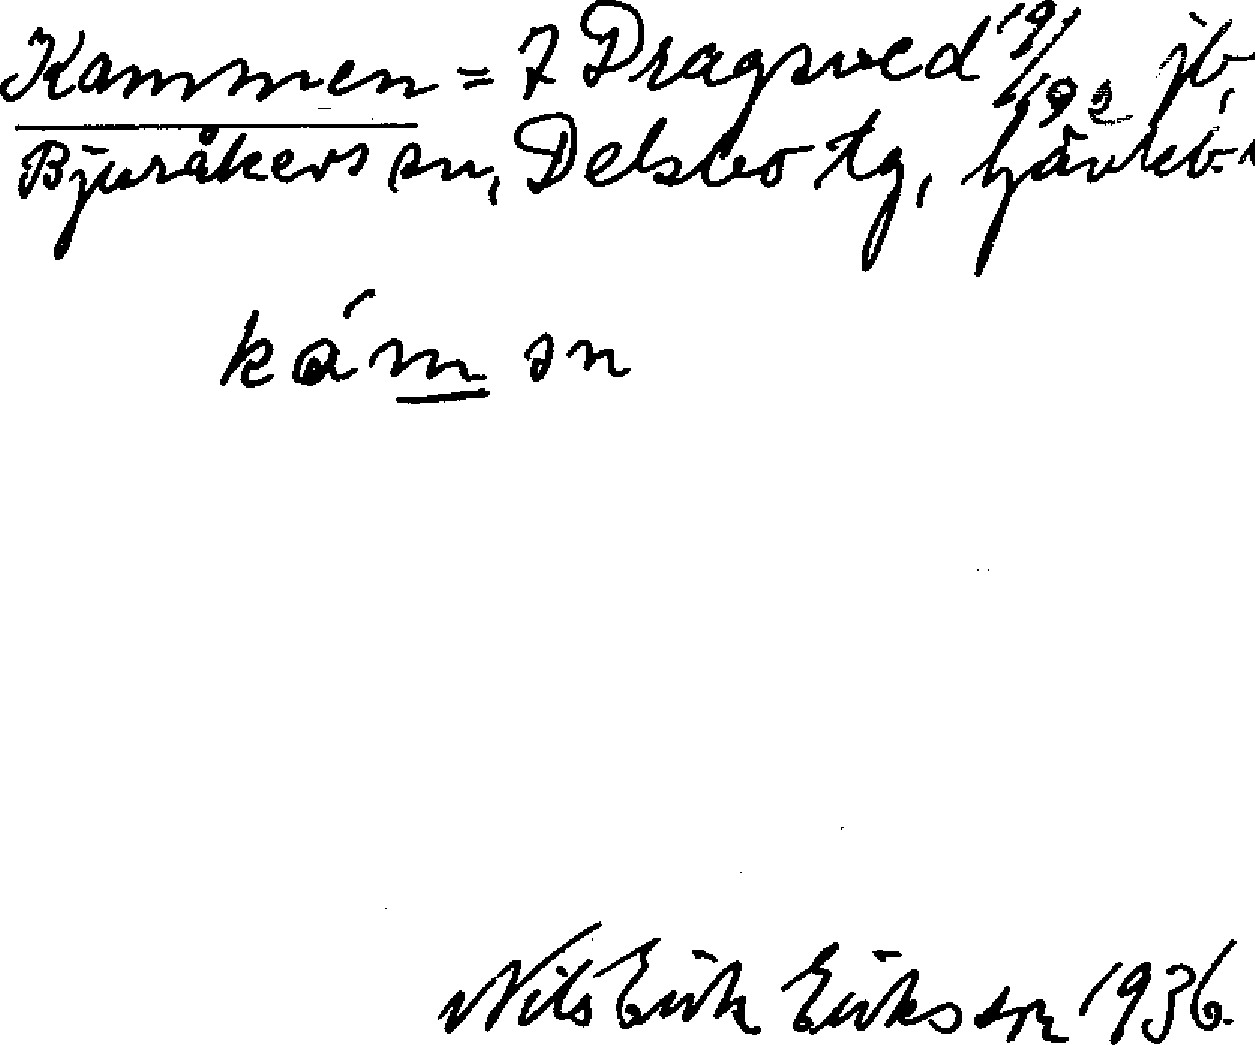 Kammen = 7 Dragsved 19/192 jb,
Bjuråkers sn, Delsbo tg, Gävleb.
kám sn
Nils Erik Eriksson 1936